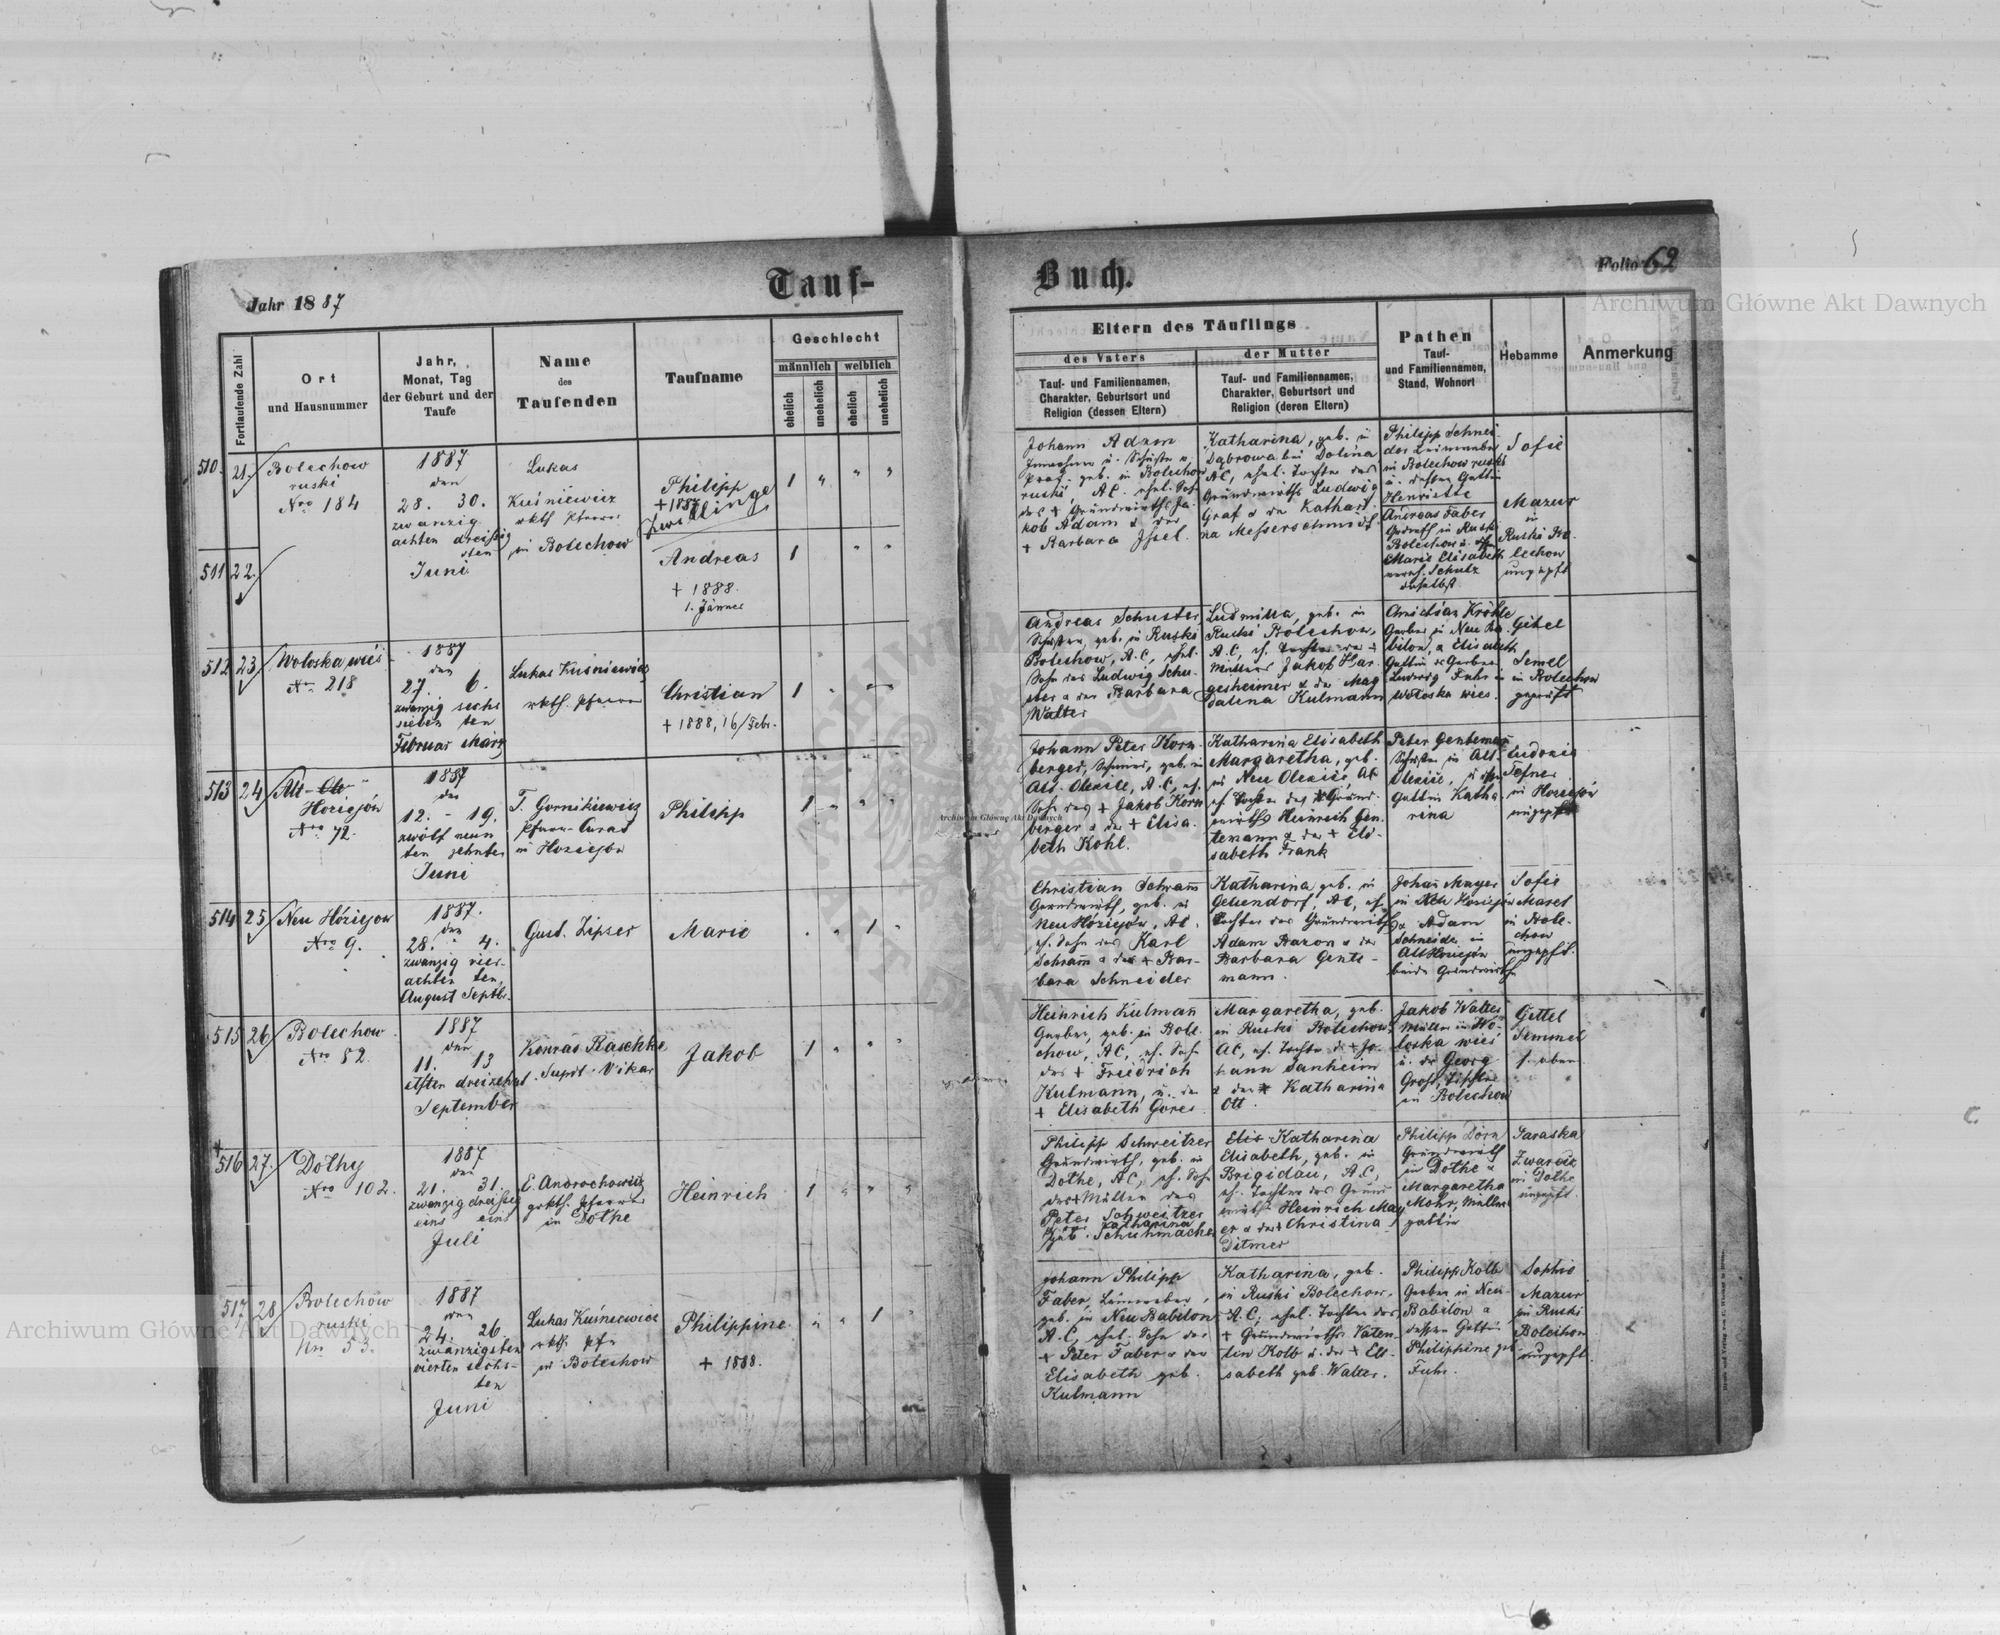 Jahr 1887
Tauf-
Buch.
Folio 62
Archiwum Główne Akt Dawnych
Fortlaufende Zahl
Ort
und Hausnummer
Jahr,
Monat, Tag
der Geburt und der
Taufe
Name
des
Taufenden
Taufname
Geschlecht
männlich
weiblich
ehelich
unehelich
ehelich
unehelich
Eltern des Täuflings
des Vaters
Tauf- und Familiennamen,
Charakter, Geburtsort und
Religion (dessen Eltern)
der Mutter
Tauf- und Familiennamen,
Charakter, Geburtsort und
Religion (deren Eltern)
Pathen
Tauf-
und Familiennamen,
Stand, Wohnort
Hebamme
Anmerkung
510. 21.
Bolechow
ruski
Nro 184
1887
den
28. 30.
zwanzig
achten dreißig
sten
Juni
Lukas
Kuśniewicz
rkth. Pfarrer
in Bolechow
Philipp
+ 1887
Zwillinge
1 " " "
Johann Adam
geb. in Bolechow
ruski, AC. ehel. Sohn
des + Grundwirths Ja-
kob Adam & der
+ Barbara Issel.
Katharina, geb. in
Dąbrowa bei Dolina
AC, ehel. Tochter des
Grundwirths Ludwig
Graf & der Kathari
na Messerschmidt
Philipp Schnei-
der
in Bolechow ruski
u. dessen Gattin
Henriette
Andreas Faber
in Ruski
Bolechow u.
Marie Elisabeth
Schulz
daselbst
Sofie
Mazur
in
Ruski Bo-
lechow
ungepft
511 22.
Andreas
+ 1888.
1. Jänner
1 " "
512 23.
Woloska wieś
Nro 218
1887
den
27. 6.
zwanzig sechs
sieben ten
Februar März
Lukas Kuśniewicz
rkth. Pfarrer
Christian
+ 1888, 16/Febr.
1
Andreas Schuster
geb. in Ruski
Bolechow, A.C, ehel.
Sohn des Ludwig Schu-
ster & der Barbara
Walter
Ludmilla, geb. in
Ruski Bolechow,
A.C, eh. Tochter des +
Müllers Jakob Har-
gesheimer & der Mag
dalena Kulmann
Christian Kröhle
Gerber in Neu Ba-
bilon, & Elisabeth
Gattin des Gerbers
Ludwig Fuhr in
Woloska wies.
Gitel
Semel
in Bolechow
geprüft
513 24
Alt-
Hoziejów
Nro 72.
1887
den
12. - 19.
zwölf neun
ten zehnten
Juni
T. Gornikiewicz
Pfarr-Curat
in Hoziejów
Philipp
1 " " "
Johann Peter Korn-
berger, geb. in
Alt-Oleksice, A.C, eh.
Sohn des + Jakob Korn
berger & der + Elisa-
beth Kohl.
Katharina Elisabeth
Margaretha, geb.
in Neu Oleksice, AC
eh. Tochter des + Grund-
wirths Heinrich Gen-
temann & der + Eli-
sabeth Frank
Peter Gentemann
in Alt
Oleksice, u.
Gattin Katha-
rina
Eudoxia
Tefner
in Hoziejów
ungepft
514 25
Neu Hoziejow
Nro 9.
1887.
den
28. 4.
zwanzig vier-
achten ten
August Septbr.
Gust. Zipser
Marie
. " 1 "
Christian Schram̅
Grundwirth, geb. in
Neu Hoziejów, AC,
eh. Sohn des Karl
Schram̅ & der + Bar-
bara Schneider
Katharina geb. in
Gelsendorf, AC, eh.
Tochter des Grundwirths
Adam Bazon & der
Barbara Gente-
mann.
Johan̅ Mayer
in Neu Hoziejów
& Adam
Schneider in
Alt Hoziejów
beide Grundwirthe
Sofie
in Bole-
chow
ungepft.
515 26
Bolechow
Nro 82.
1887
den
11. 13
elften dreizehnt.
September
Konrad Raschke
Supdt. Vikar
Jakob
1 " " "
Heinrich Kulman̅
Gerber, geb. in Bole-
chow, AC, eh. Sohn
des + Friedrich
Kulmann, u. der
+ Elisabeth Gores
Margaretha, geb.
in Ruski Bolechow,
AC, eh. Tochter d. + Jo-
hann Sanheim
& der + Katharina
Ott.
Jakob Walter
Müller in Wo-
loska wieś
u. der Georg
Grohs, Tischler
in Bolechow
Gettel
Semmel
s. oben
516 27.
Dolhy
Nro 102.
1887
den
21. 31.
zwanzig dreißig
eins eins
Juli
E. Androchowicz
grkth. Pfarrer
in Dolhe
Heinrich
1 " " "
Philipp Schweitzer
Grundwirth, geb. in
Dolhe, AC, eh. Sohn
des + Müllers
Peter Schweitzer
Katharina
geb. Schuhmacher
Elis Katharina
Elisabeth, geb. in
Brigidau, A.C,
eh. Tochter des Grund
wirth Heinrich May
er & der + Christina
Ditmer
Philipp Dorn
Grundwirth
in Dolhe &
Margaretha
Mohr, Müllers
gattin
Paraska
Zwaricz
in Dolhe
ungepft.
517 28
Bolechow
ruski
Nro 53.
1887
den
24. 26.
zwanzigsten
vierten sechs-
ten
Juni
Lukas Kuśniewicz
rkth. Pfr
in Bolechow
Philippine
+ 1888.
" " 1 "
Johann Philipp
Faber,
geb. in Neu Babilon
A.C, ehel. Sohn des
+ Peter Faber & der
Elisabeth geb.
Kulmann
Katharina, geb.
in Ruski Bolechow,
A.C; ehel. Tochter des
+ Grundwirths Valen-
tin Kolb u. der + Eli-
sabeth geb. Walter.
Philipp Kolb
Gerber in Neu-
Babilon &
dessen Gattin
Philippine geb.
Fuhr.
Sophie
Mazur
in Ruski
Bolechow
ungepft.
Archiwum Główne Akt Dawnych
Archiwum Główne Akt Dawnych